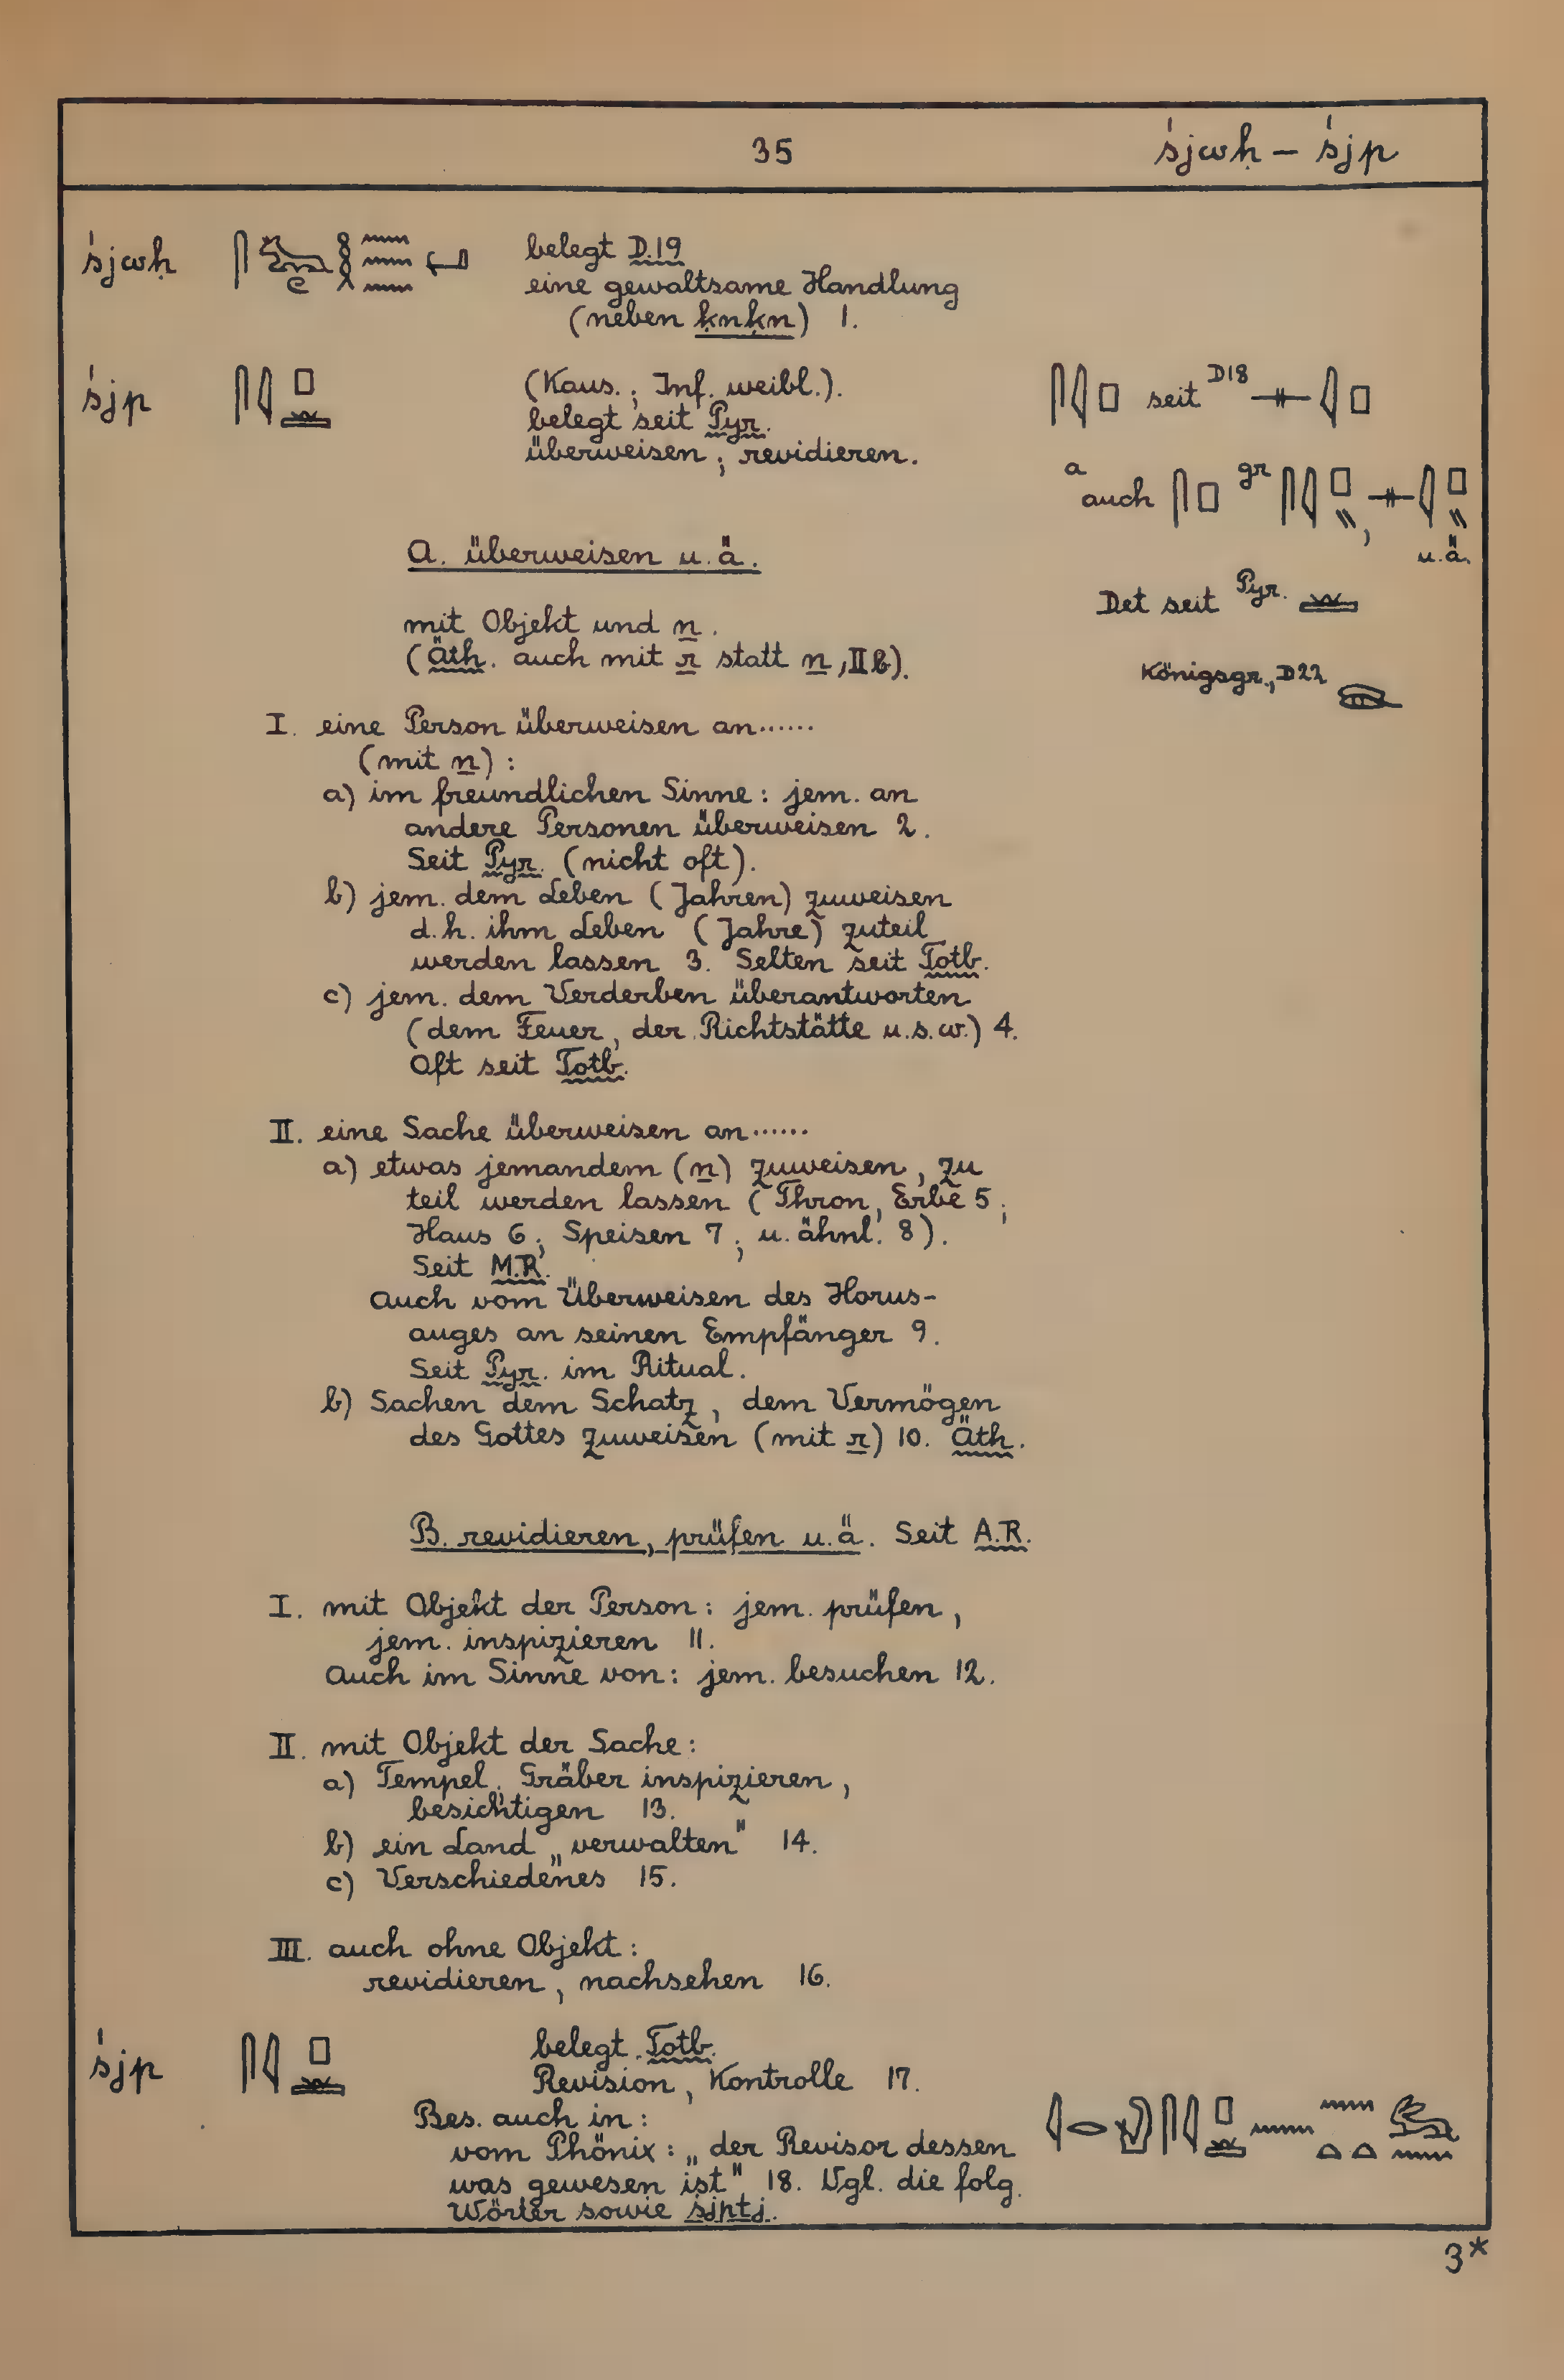 35
śjwḥ – śjp
śjwḥ
belegt D.19
eine gewaltsame Handlung
(neben ḳnḳn) 1.
śjp
(Kaus.; Inf. weibl.).
belegt seit Pyr.
überweisen; revidieren.
seit D18
a auch gr
u.ä.
Det seit Pyr.
Königsgr., D22
A. überweisen u.ä.
mit Objekt und n.
(Äth. auch mit r statt n, II b).
I. eine Person überweisen an......
(mit n):
a) im freundlichen Sinne: jem. an
andere Personen überweisen 2.
Seit Pyr. (nicht oft).
b) jem. dem Leben (Jahren) zuweisen
d.h. ihm Leben (Jahre) zuteil
werden lassen 3. Selten seit Totb.
c) jem. dem Verderben überantworten
(dem Feuer, der Richtstätte u.s.w.) 4.
Oft seit Totb.
II. eine Sache überweisen an......
a) etwas jemandem (n) zuweisen, zu
teil werden lassen (Thron, Erbe 5;
Haus 6; Speisen 7; u. ähnl. 8).
Seit M.R.
Auch vom Überweisen des Horus-
auges an seinen Empfänger 9.
Seit Pyr. im Ritual.
b) Sachen dem Schatz, dem Vermögen
des Gottes zuweisen (mit r) 10. Äth.
B. revidieren, prüfen u.ä. Seit A.R.
I. mit Objekt der Person: jem. prüfen,
jem. inspizieren 11.
Auch im Sinne von: jem. besuchen 12.
II. mit Objekt der Sache:
a) Tempel, Gräber inspizieren,
besichtigen 13.
b) ein Land „verwalten" 14.
c) Verschiedenes 15.
III. auch ohne Objekt:
revidieren, nachsehen 16.
śjp
belegt Totb.
Revision, Kontrolle 17.
Bes. auch in:
vom Phönix: „der Revisor dessen
was gewesen ist" 18. Vgl. die folg.
Wörter sowie śjptj.
3*